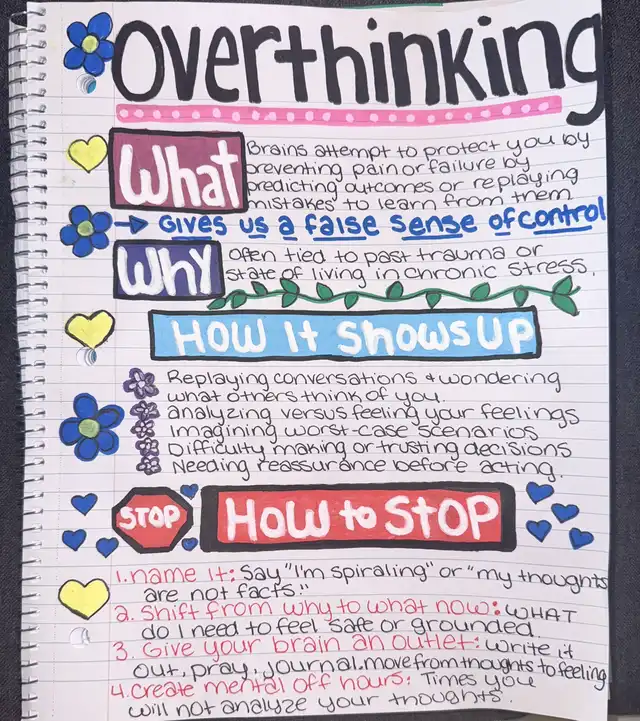 Overthinking
What
Brains attempt to protect you by
preventing pain or failure by
predicting outcomes or replaying
mistakes' to learn from them
→ Gives us a false sense of control
Why
often tied to past trauma or
state of living in chronic stress.
How It Shows Up
Replaying conversations + wondering
what others think of you.
analyzing versus feeling your feelings
Imagining worst-case scenarios
Difficulty making or trusting decisions
Needing reassurance before acting.
STOP
How to STOP
1. name it: Say "I'm spiraling" or "my thoughts
are not facts."
2. Shift from why to what now: WHAT
do I need to feel safe or grounded.
3. Give your brain an outlet: Write it
out, pray, journal. move from thoughts to feeling
4. Create mental off hours: Times you
will not analyze your thoughts.